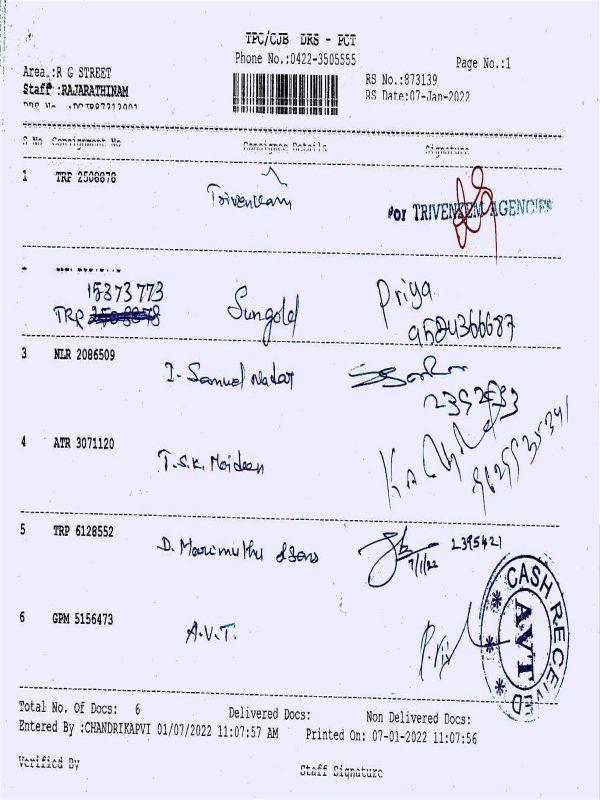 TPC/CJB DRS - PCT
Phone No.:0422-3505555
Page No.:1
Area :R G STREET
Staff :RAJARATHINAM
RS No.:873139
RS Date:07-Jan-2022
S No Consignment No Consignee Details Signature
1 TRP 2508878
For TRIVENKEM AGENCIES
15373773
TRP
Sungold
Priya
9584366687
3 NLR 2086509
I. Samuel Nadar
4 ATR 3071120
T.S.K. Moideen
5 TRP 6128552
D. Marimuthu & Sons
2395421
7/1/22
6 GPM 5156473
A.V.T.
CASH RECEIVED
AVT
Total No. Of Docs: 6
Delivered Docs:
Non Delivered Docs:
Entered By :CHANDRIKAPVI 01/07/2022 11:07:57 AM
Printed On: 07-01-2022 11:07:56
Verified By
Staff Signature